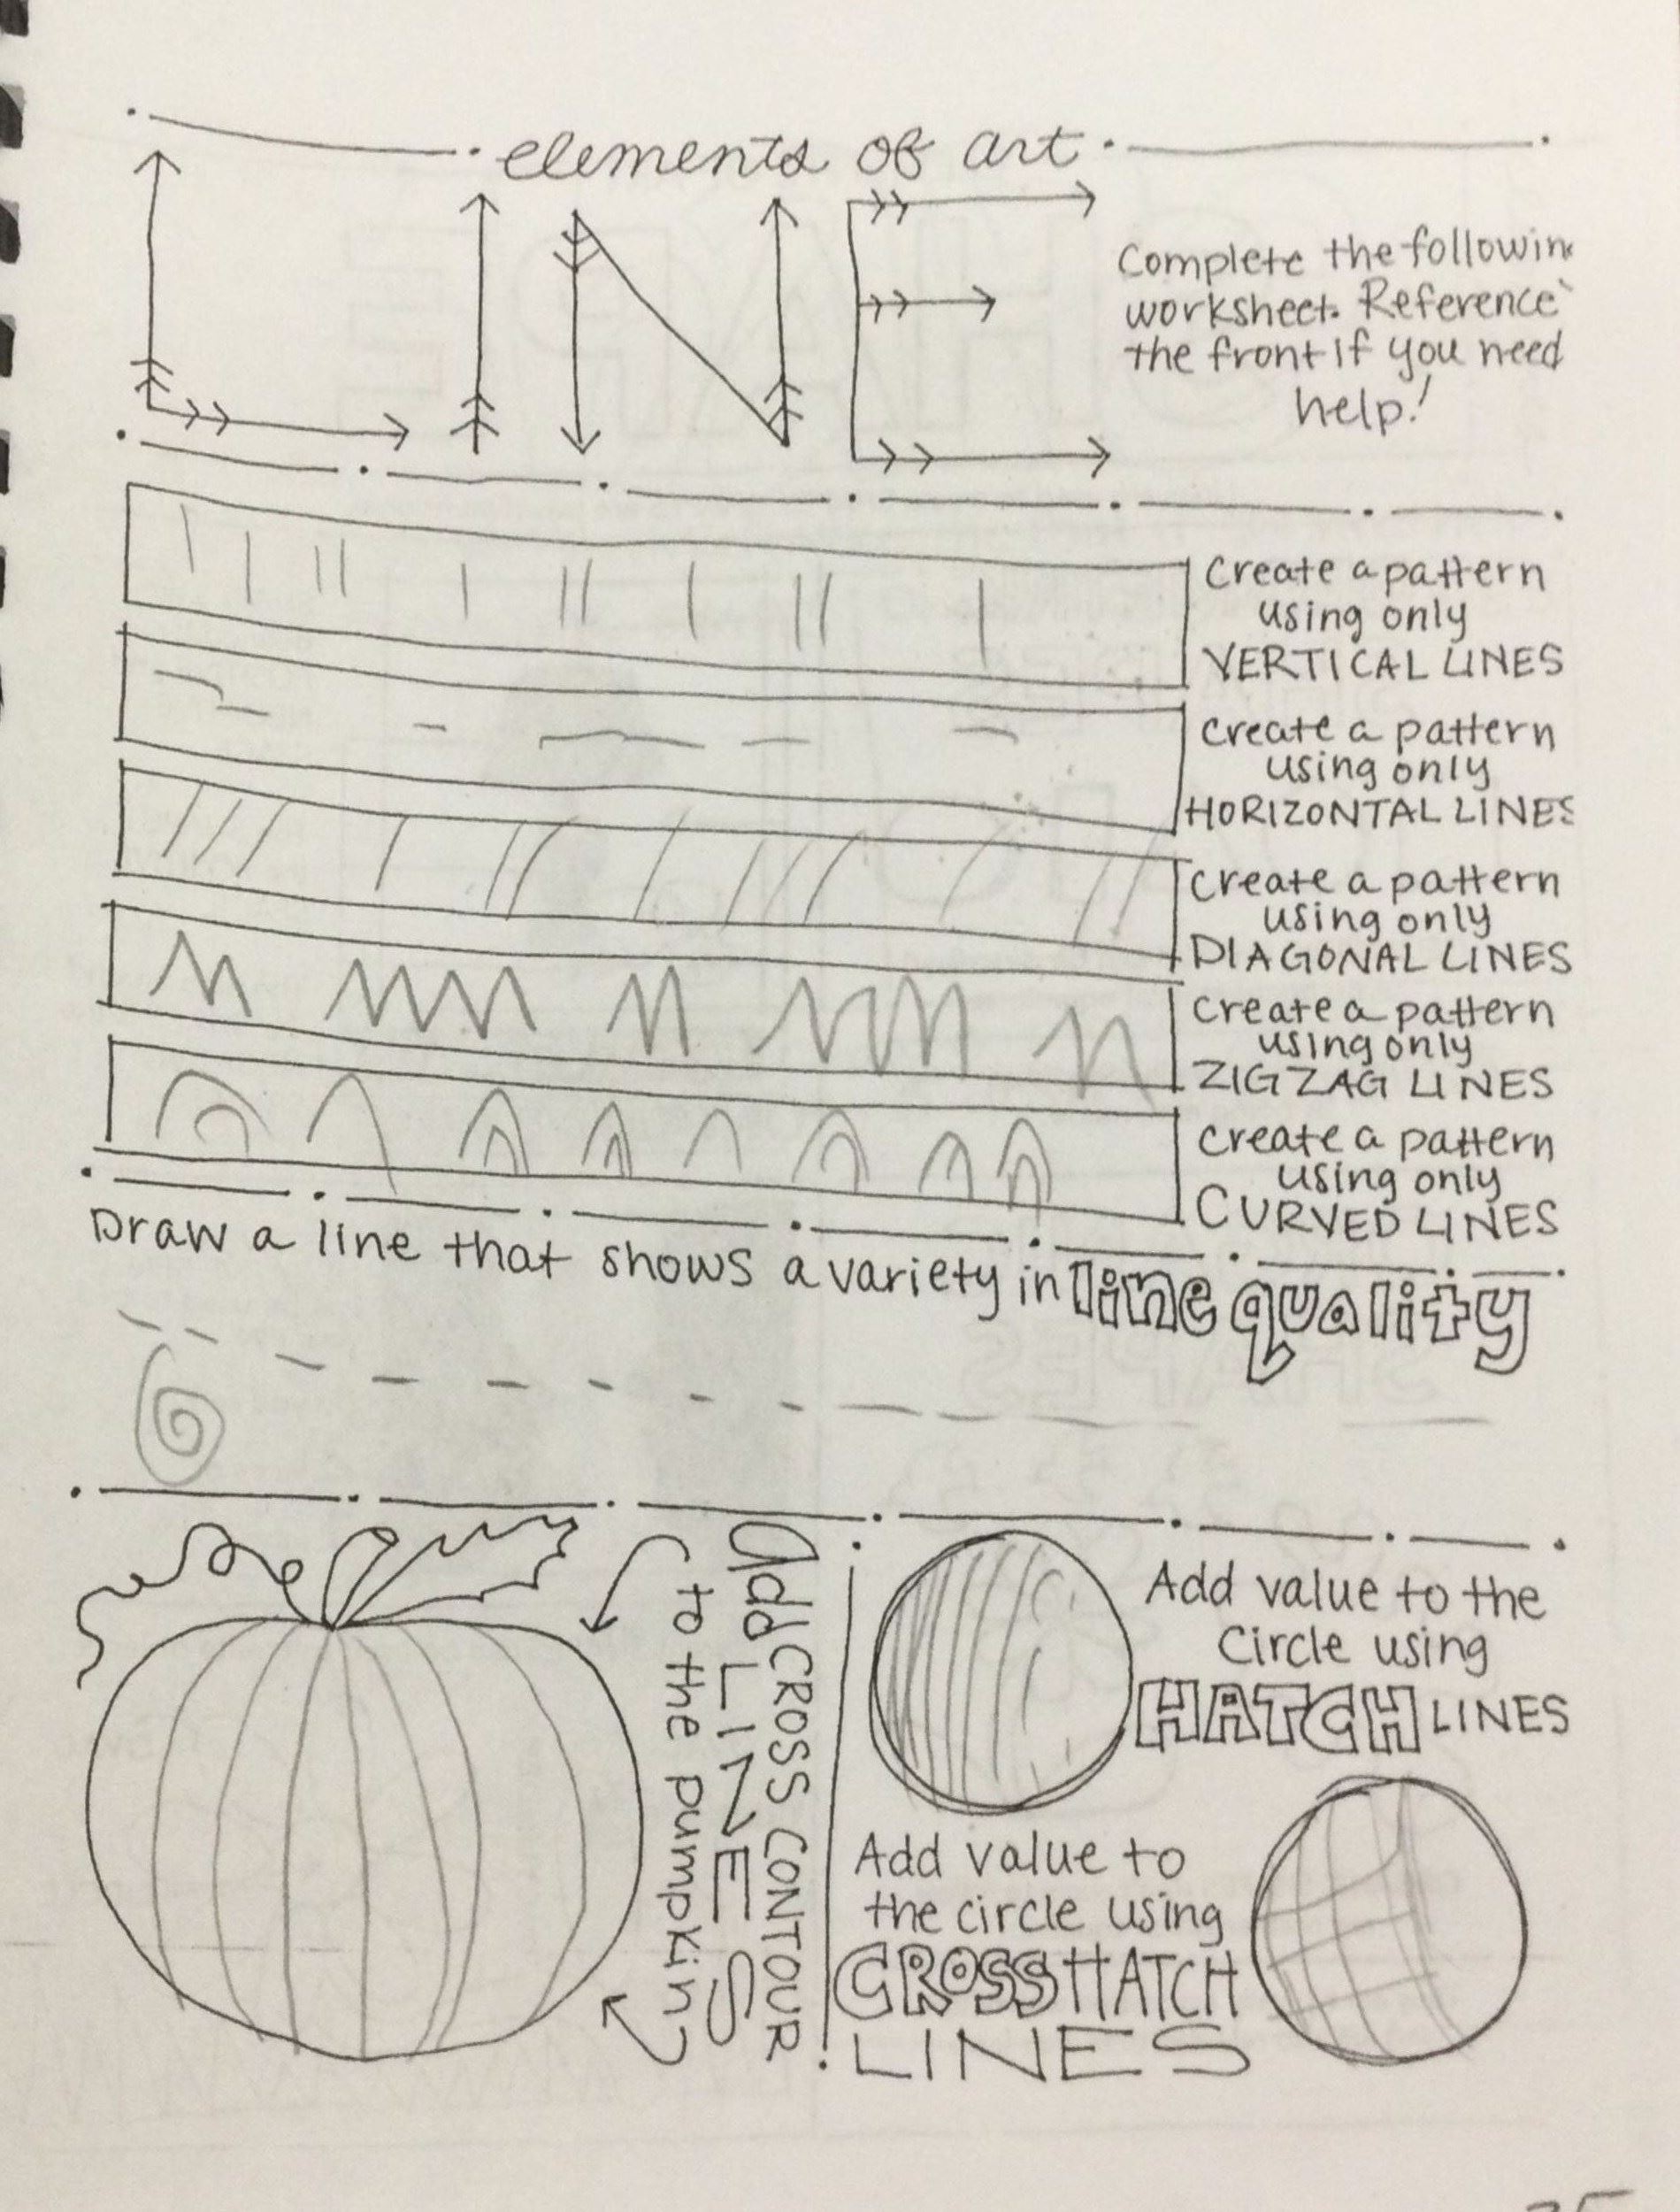 elements of art
LINE
Complete the followin
worksheet. Reference
the front if you need
help!
Create a pattern
using only
VERTICAL LINES
Create a pattern
using only
HORIZONTAL LINES
Create a pattern
using only
DIAGONAL LINES
Create a pattern
using only
ZIGZAG LINES
Create a pattern
using only
CURVED LINES
Draw a line that shows a variety in line quality
Add CROSS CONTOUR
LINES
to the pumpkin
Add value to the
Circle using
HATCH LINES
Add value to
the circle using
CROSS HATCH
LINES